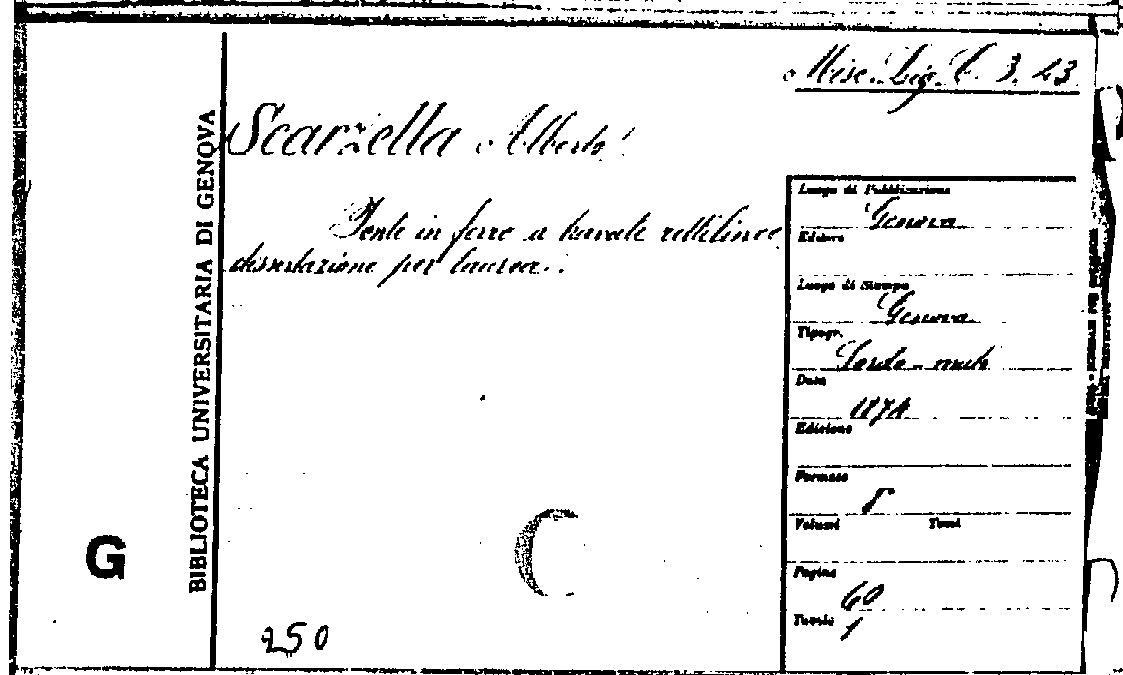 Misc. Lig. C. 3. 23
Scarzella Alberto
Ponte in ferro a travate rettilinee
dissertazione per laurea.
BIBLIOTECA UNIVERSITARIA DI GENOVA
G
250
Luogo di Pubblicazione
Genova
Editore
Luogo di Stampa
Genova
Tipogr.
Sordo-muti
Data
1874
Edizione
Formato
8
Volumi Tomi
Pagine
60
Tavole
1